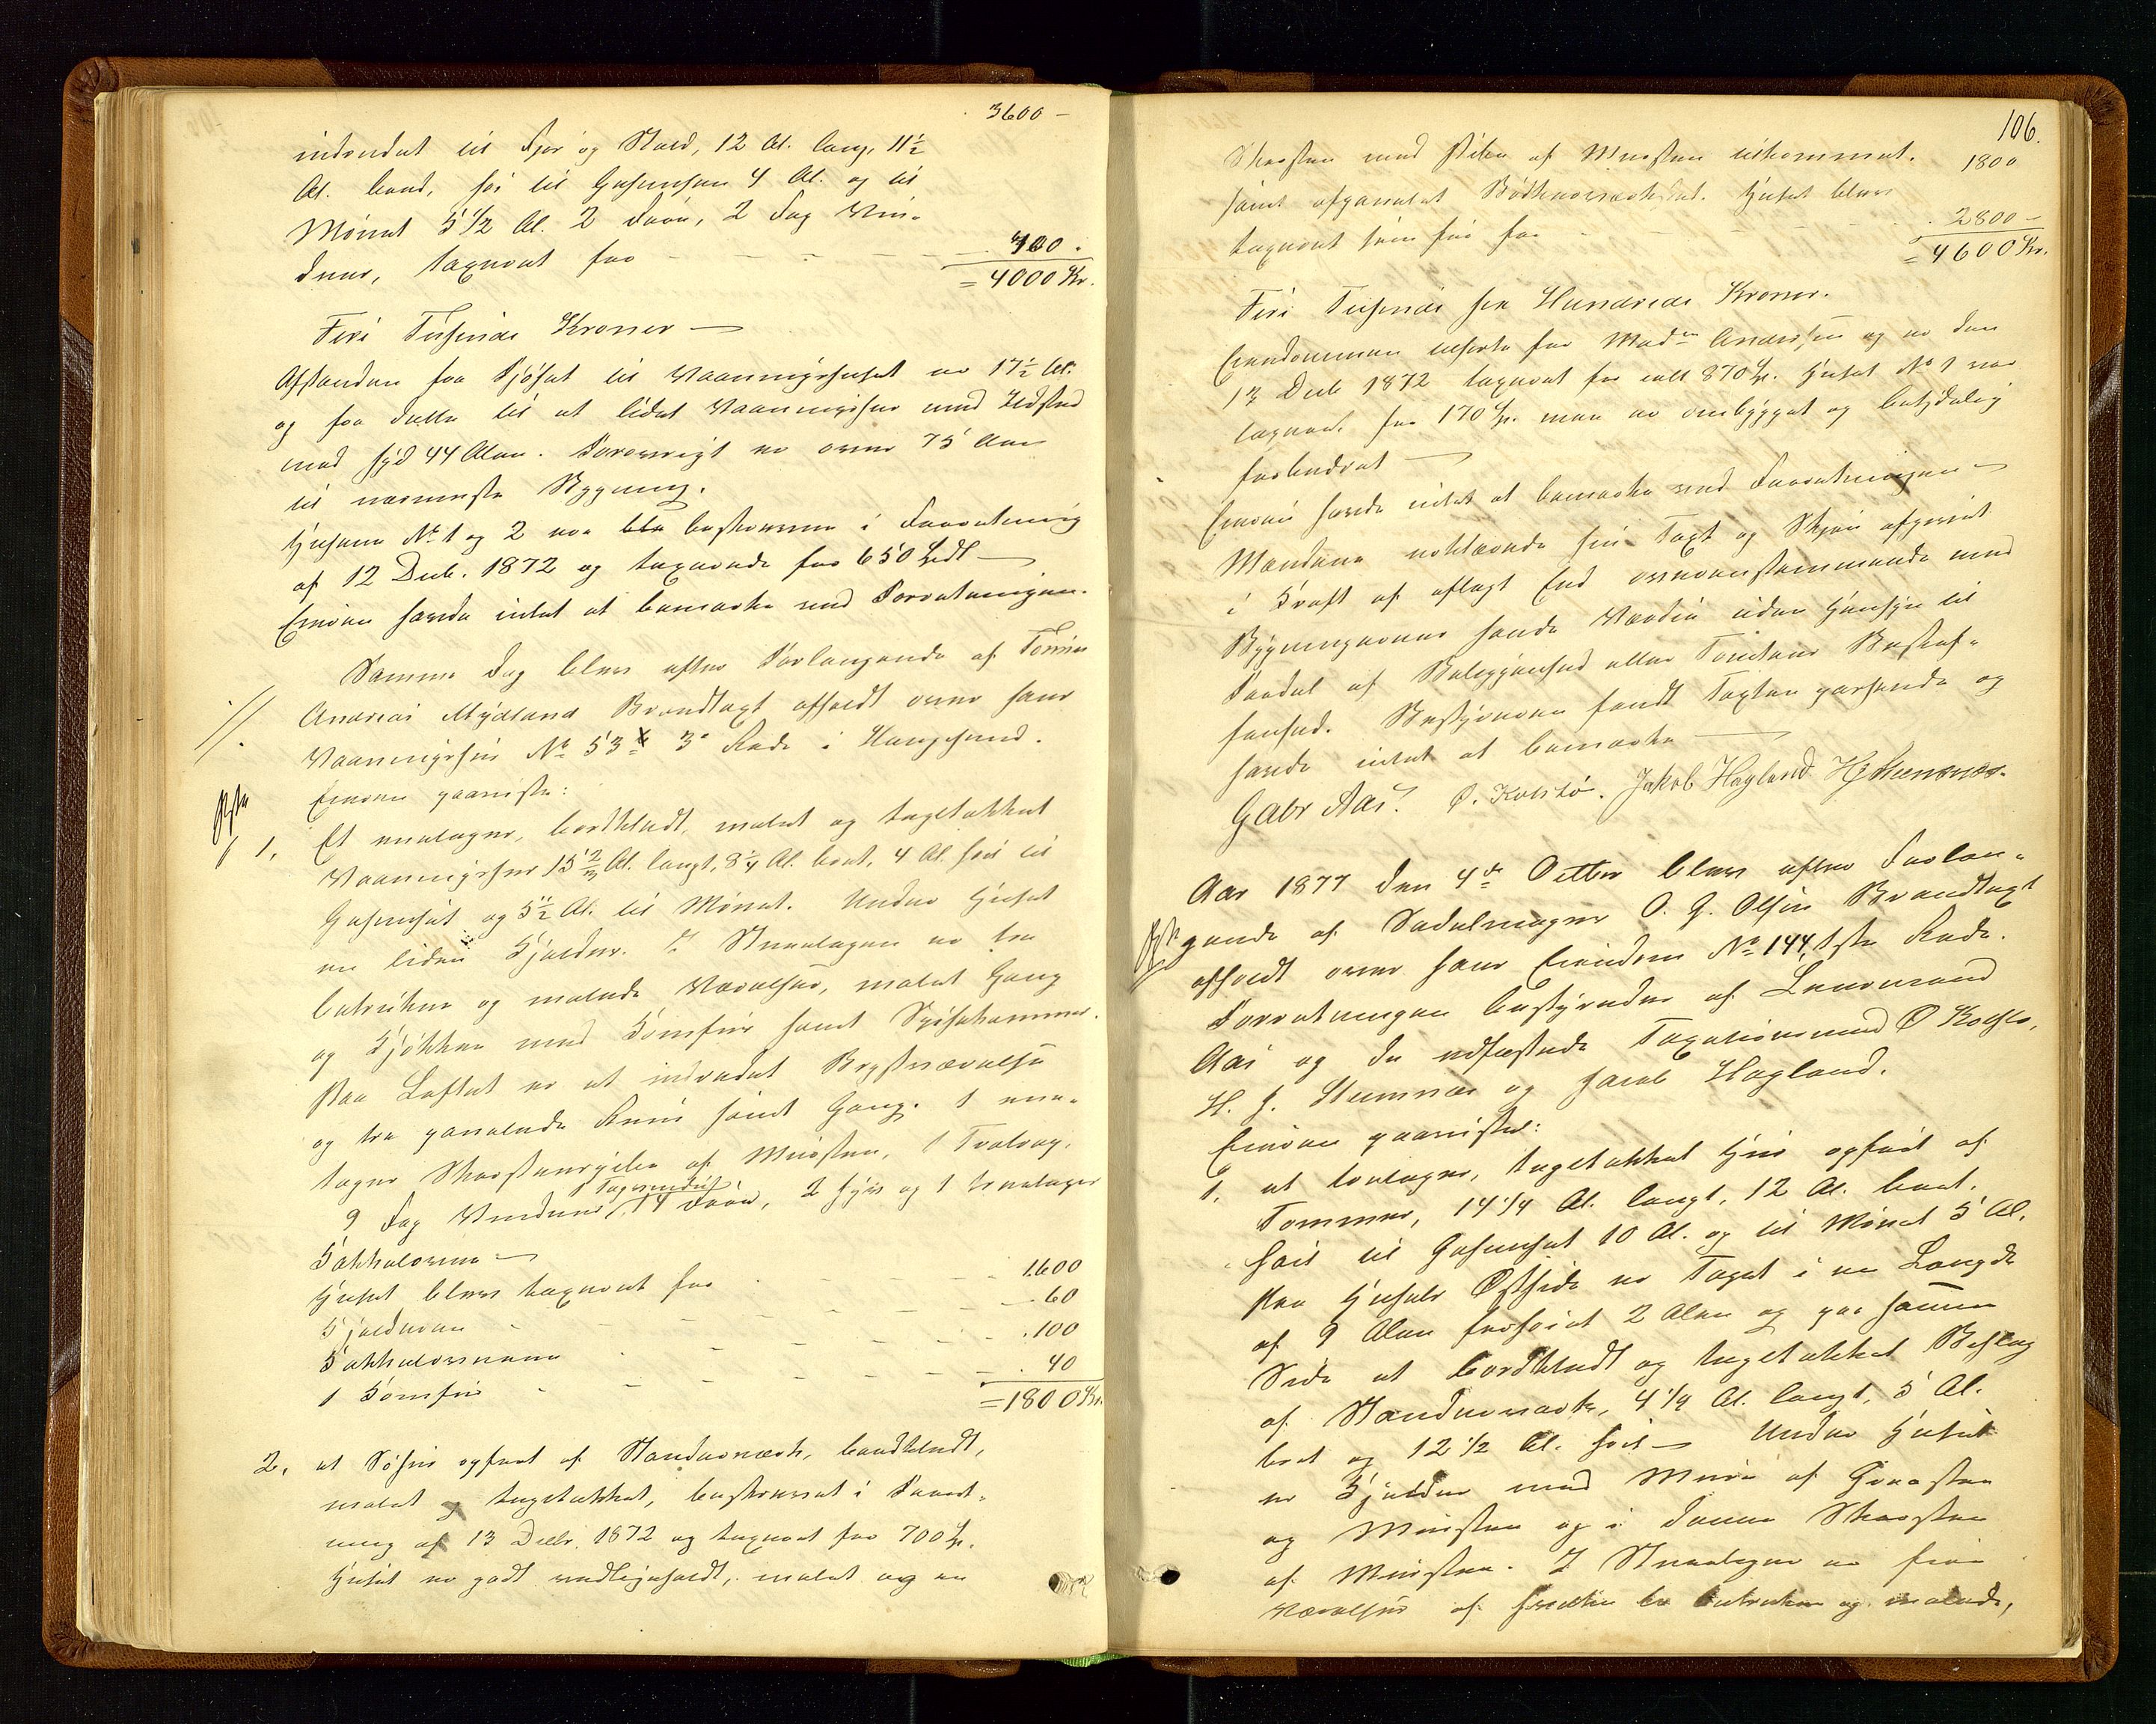 3600 –
indredet til Fjøs og Stald, 12 Al. lang, 11½
Al. bred, høi til Gesimsen 4 Al. og til
Mønet 5½ Al. 2 Døre, 2 Fag Vin-
duer, taxeret for – – – 400.
= 4000 Kr.
Fire Tusinde Kroner —
Afstanden fra Sjøhuset til Vaaningshuset er 17½ Al.
og fra dette til et lidet Vaaningshus med Ildsted
mod Syd 44 Alen. Forøvrigt er over 75 Alen
til nærmeste Bygning.
Husene No 1 og 2 ere bleven beskrevne i Forretning
af 12 Decb. 1872 og taxerede for 650 Spdl —
Eieren havde intet at bemærke ved Forretningen.
Samme Dag blev efter Forlangende af
Andreas Mydland Brandtaxt afholdt over hans
Vaaningshus No 53 3die Rode i Haugesund.
Eieren paaviste:
1. Et enetages, bordklædt, malet og tagstakket
Vaaningshus 15 Al. langt, 8¼ Al. bredt, 4 Al. høit til
Gesimset og 5½ Al. til Mønet. Under Huset
en liden Kjælder. I Stueetagen er to
betrukne og malede Værelser, malet Gang
og Kjøkken med Komfur samt Spisekammer.
Paa Loftet er et indredet Kvistværelse
og to panelede Rum samt Gang. 1 een-
tages Skorstenspibe af Mursten, 1
9 Fag Vinduer, 14 Døre, 2 Hyr og 1 toetages
Kakkelovne —
Huset blev taxeret for – – – 1600
Kjælderen – – – 60
Kakkelovnene – – – 100
1 Komfur – – – 40
= 1800 Kr.
2. et Søhus opført af Standerværk, bordklædt,
malet og tagstakket, beskrevet i Forret-
ning af 13 Decbr. 1872 og taxeret for 700 Sp.
Huset er godt vedligeholdt, malet og en
106.
Skorsten med Pibe af Mursten tilkommet. 1800
samt afpanelet Huset blev
taxeret som før for – – – 2800 –
= 4600 Kr.
Fire Tusinde sex Hundrede Kroner.
Eiendommen tilhørte før Madm Andersen og er den
13 Decb 1872 taxeret for ialt 870 Sp. Huset No 1 var
taxeret for 170 Sp. men er ombygget og betydelig
forbedret —
Eieren havde intet at bemærke ved Forretningen —
Mændene erklærede sin Taxt og Skjøn afgivet
i Kraft af aflagt Eed overensstemmende med
Bygningernes sande Værdie uden Hensyn til
Fordel af Beliggenhed eller Tomtens Beskaf-
fenhed. Bestyreren fandt Taxten passende og
havde intet at bemærke —
Gabr Aas. O. Kolstø. Jakob Hagland HJStumnæs.
Aar 1877 den 4de Octbr blev efter Forlan-
gende af Sadelmager O. G. Olsen Brandtaxt
afholdt over hans Eiendom No 144, 1ste Rode.
Forretningen bestyredes af Lensmand
Aas og de edfæstede Taxationsmænd O Kolstø,
H. J. Stumnæs og Jacob Hagland.
Eieren paaviste:
1. et toetages, tagstakket Hus opført af
Tømmer, 14¼ Al. langt, 12 Al. bredt.
høit til Gesimset 10 Al. og til Mønet 5 Al.
Paa Husets Østside er Taget i en Længde
af 9 Alen forhøiet 2 Alen og paa samme
Side et bordklædt og tagstakket Bislag
af Standerværk, 4¼ Al. langt, 5 Al.
bredt og 12½ Al. høit — Under Huset
er Kjælder med Mure af Graasten
og Mursten og i denne Skorsten
af Mursten. I Stueetagen er fire
Værelser af hvilke to betrukne og malede,